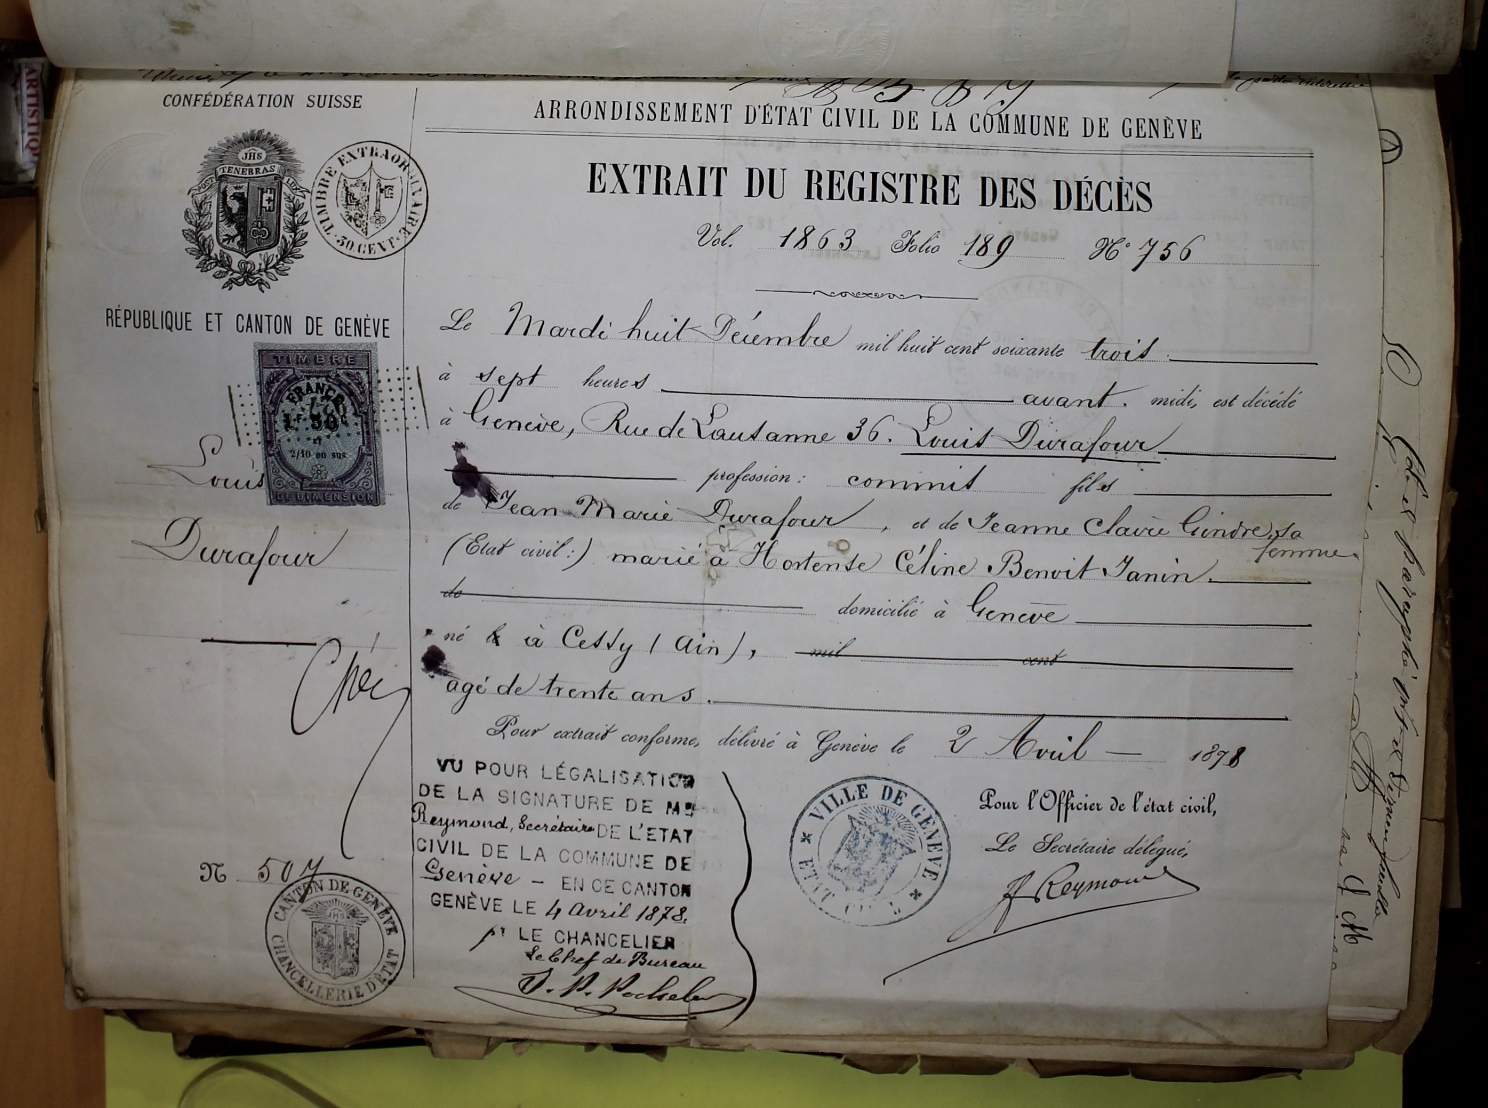 CONFÉDÉRATION SUISSE
JHS
TENEBRAS
TIMBRE EXTRAORDINAIRE
50 CENT.
RÉPUBLIQUE ET CANTON DE GENÈVE
TIMBRE
FRANCE
2/10 en sus
DE DIMENSION
Louis
Durafour
N 507
CANTON DE GENÈVE
CHANCELLERIE D'ÉTAT
ARRONDISSEMENT D'ÉTAT CIVIL DE LA COMMUNE DE GENÈVE
EXTRAIT DU REGISTRE DES DÉCÈS
Vol. 1863 Folio 189 N° 756
Le Mardi huit Décembre mil huit cent soixante trois
à sept heures avant midi, est décédé
à Genève, Rue de Lausanne 36. Louis Durafour
profession: commis fils
de Jean Marie Durafour, et de Jeanne Claire Gindre, sa
femme.
(Etat civil:) marié à Hortense Céline Benoit Janin.
de domicilié à Genève
né le à Cessy (Ain), mil cent
agé de trente ans.
Pour extrait conforme, délivré à Genève le 2 Avril 1878
VU POUR LÉGALISATION
DE LA SIGNATURE DE MR
Reymond, Secrétaire DE L'ETAT
CIVIL DE LA COMMUNE DE
Genève - EN CE CANTON
GENÈVE LE 4 Avril 1878.
pr LE CHANCELIER
Le Chef de Bureau
VILLE DE GENÈVE
ETAT CIVIL
Pour l'Officier de l'état civil,
Le Secrétaire délégué,
Reymond
ARTISTIQ